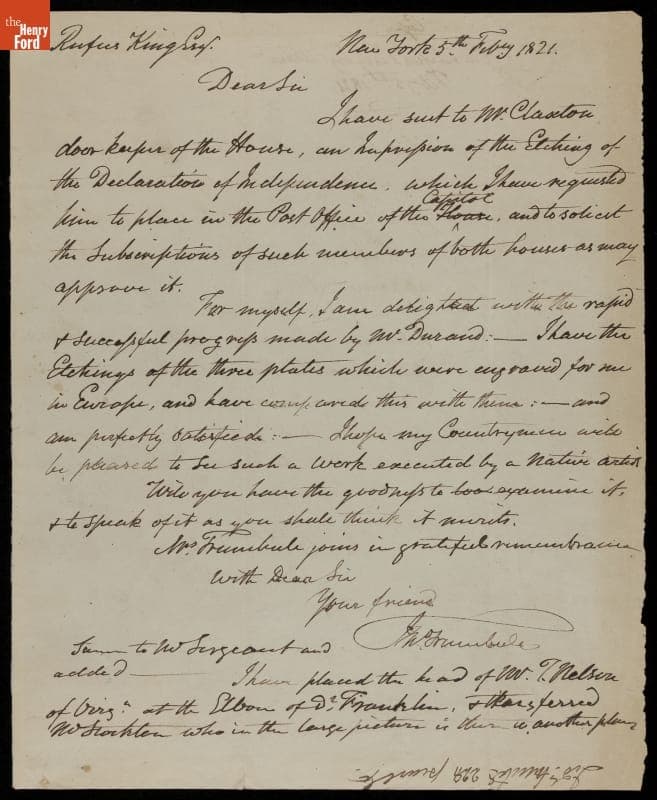 the
Henry
Ford
Rufus King Esq.
New York 5th Feby 1821.
Dear Sir
I have sent to Mr. Claxton
door keeper of the House, an Impression of the Etching of
the Declaration of Independence, which I have requested
him to place in the Post Office of the House, and to solicit
Capitol
the Subscriptions of such members of both houses as may
approve it.
For myself, I am delighted with the rapid
& successful progress made by Mr. Durand: — I have the
Etchings of the three plates which were engraved for me
in Europe, and have compared this with them: — and
am perfectly satisfied: — I hope my Countrymen will
be pleased to see such a work executed by a Native artist
Will you have the goodness to examine it,
& to speak of it as you shall think it merits.
Mrs. Trumbull joins in grateful remembrance
with Dear Sir
Your friend
Jno Trumbull
Same to Mr Sergeant and
added —
I have placed the head of Mr. T. Nelson
of Virga. at the Elbow of Dr. Franklin, & transferred
Mr Stockton who in the large picture is there to another place